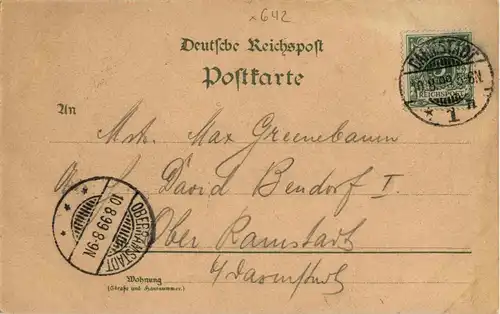 x642
Deutsche Reichspost
Postkarte
DARMSTADT
10.8.99.5-6N.
* 1 n
REICHSPOST
An
Mstr. Max Greenebaum
David Bendorf I.
Ober Ramstadt
b/Darmstadt
OBER-RAMSTADT
10.8.99.8-9N.
Wohnung
(Straße und Hausnummer.)